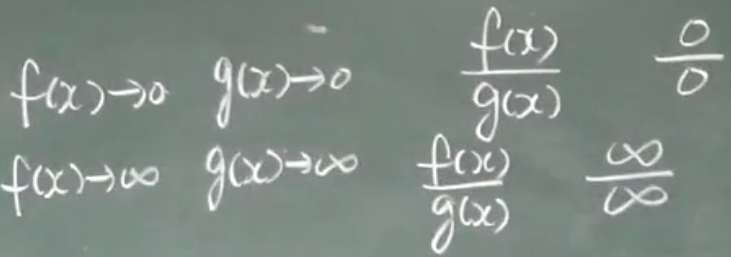 f(x)→0 g(x)→0 f(x)/g(x) 0/0
f(x)→∞ g(x)→∞ f(x)/g(x) ∞/∞